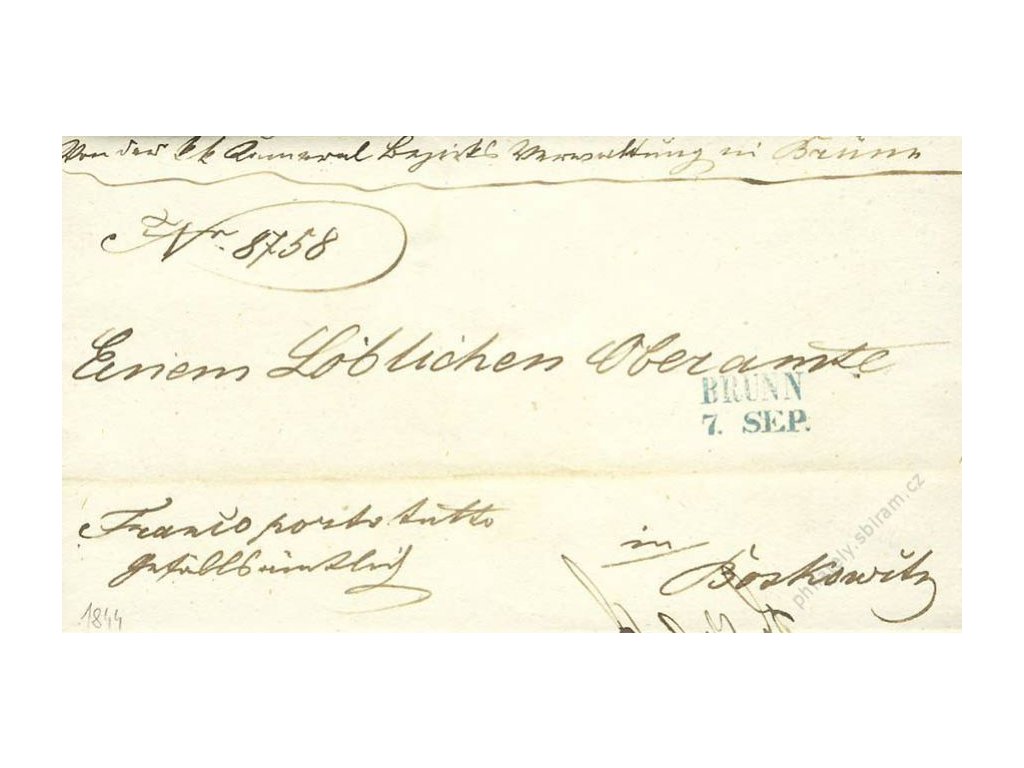 Von der k k Cameral Bezirks Verwaltung in Brünn
Nr. 8758
Einem Löblichen Oberamte
BRÜNN
7. SEP.
Franco porto tutto
Gefällsämtlich
in
Boskowitz
1844
philately.sbiram.cz